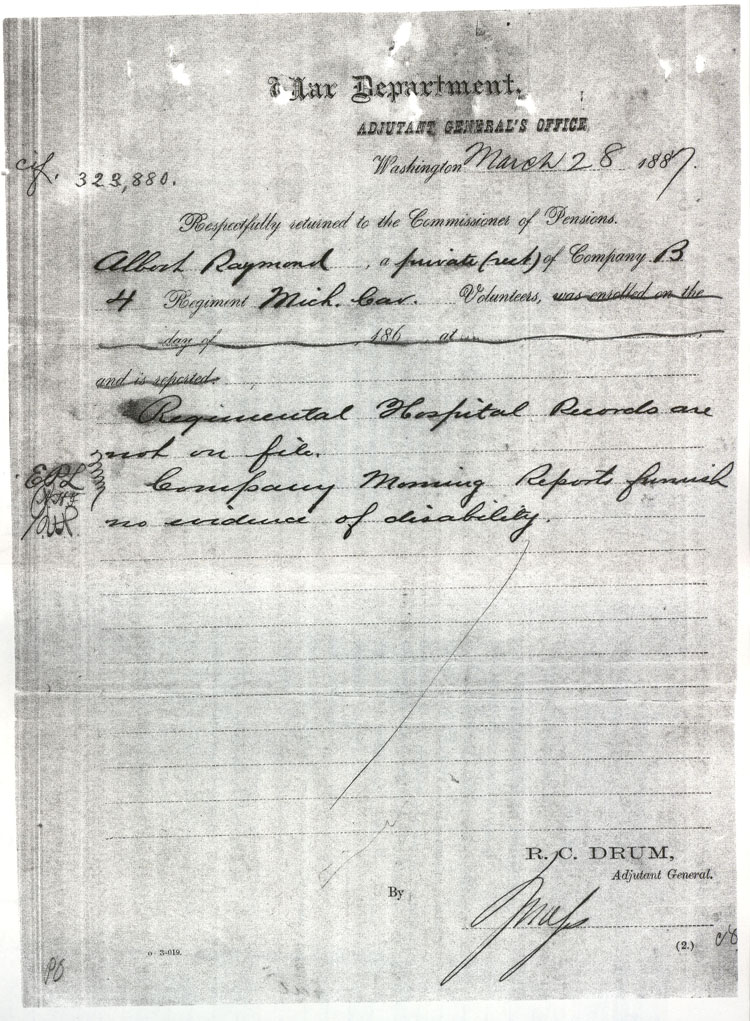 War Department,
ADJUTANT GENERAL'S OFFICE,
Washington March 28 1887.
323,880.
Respectfully returned to the Commissioner of Pensions.
Albert Raymond, a private (rect) of Company B
4 Regiment Mich. Cav. Volunteers, was enrolled on the
day of , 186 , at ,
and is reported:
Regimental Hospital Records are
not on file.
Company Morning Reports furnish
no evidence of disability.
R. C. DRUM,
Adjutant General.
By
o 3-019.
(2.)